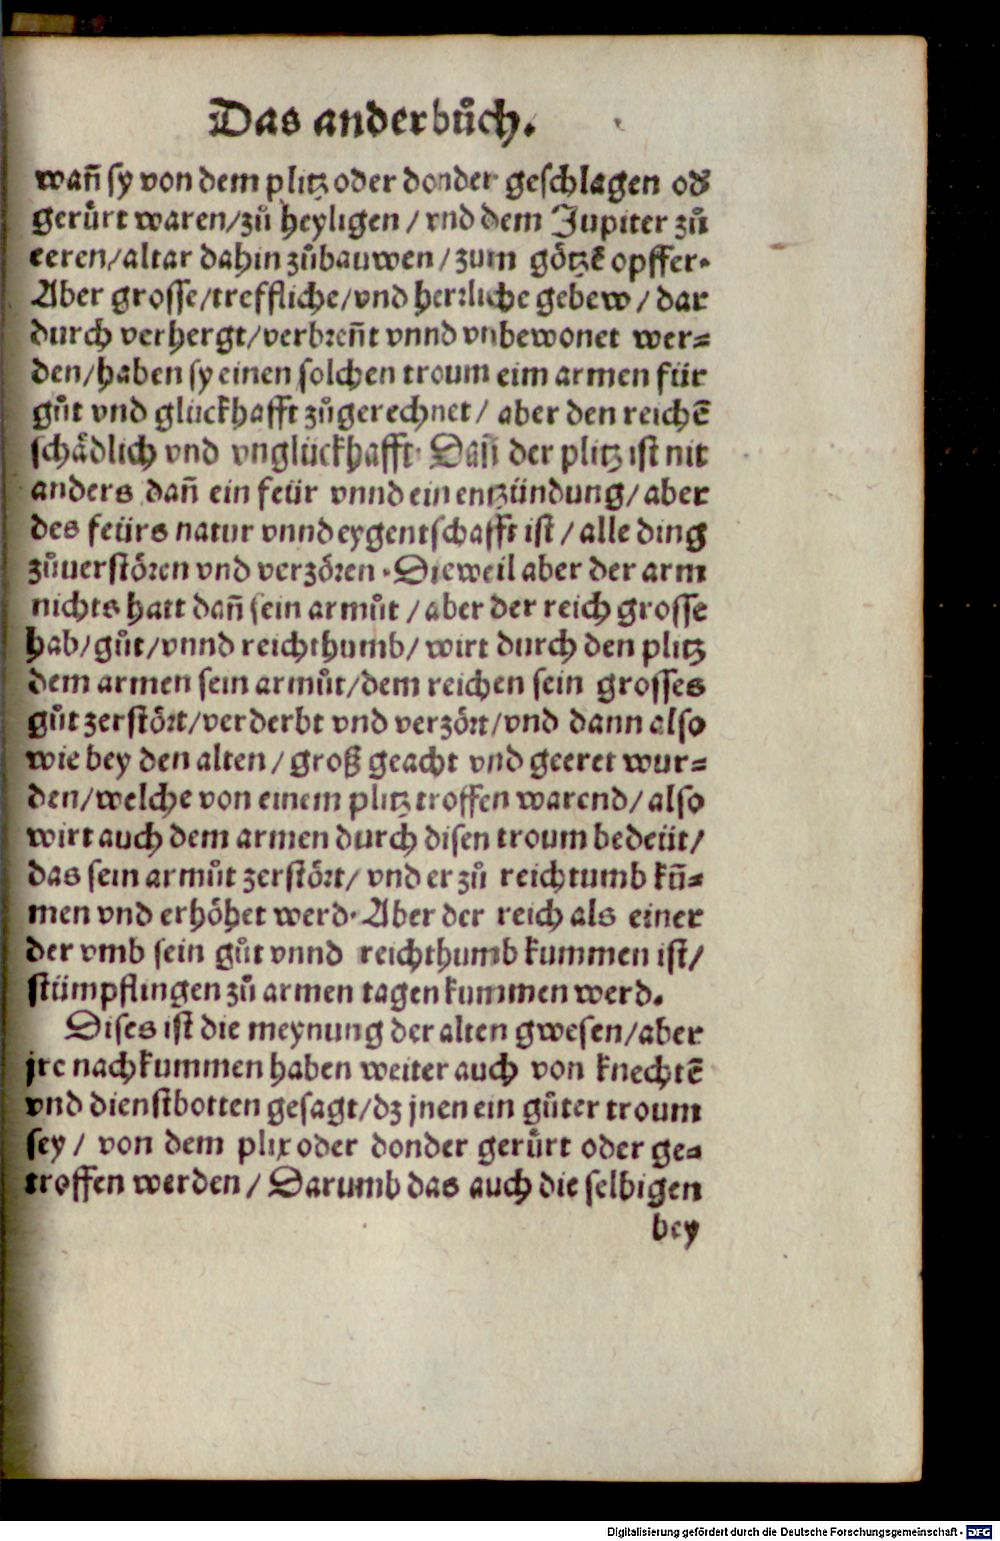 Das ander bůch.
wañ sy von dem plitz oder donder geschlagen od
gerůrt waren/zů heyligen / vnd dem Jupiter zů
eeren/altar dahin zůbauwen/zum götzē opffer.
Aber grosse/treffliche/vnd herrliche gebew/ dar
durch verhergt/verbreñt vnnd vnbewonet wer-
den/haben sy einen solchen troum eim armen für
gůt vnd glückhafft zůgerechnet/ aber den reichē
schädlich vnd vnglückhafft. Dañ der plitz ist nit
anders dañ ein feür vnnd ein entzündung/aber
des feürs natur vnnd eygentschafft ist/alle ding
zůuerstören vnd verzören. Dieweil aber der arm
nichts hatt dañ sein armůt/aber der reich grosse
hab/gůt/vnnd reichthumb/wirt durch den plitz
dem armen sein armůt/dem reichen sein grosses
gůt zerstört/verderbt vnd verzört/vnd dann also
wie bey den alten/groß geacht vnd geeret wur-
den/welche von einem plitz troffen warend/also
wirt auch dem armen durch disen troum bedeüt/
das sein armůt zerstört/ vnd er zů reichtumb kū-
men vnd erhöhet werd. Aber der reich als einer
der vmb sein gůt vnnd reichthumb kummen ist/
stümpflingen zů armen tagen kummen werd.
Dises ist die meynung der alten gwesen/aber
jre nachkummen haben weiter auch von knechtē
vnd dienstbotten gesagt/dz jnen ein gůter troum
sey/ von dem plix oder donder gerůrt oder ge-
troffen werden/Darumb das auch die selbigen
bey
Digitalisierung gefördert durch die Deutsche Forschungsgemeinschaft - DFG